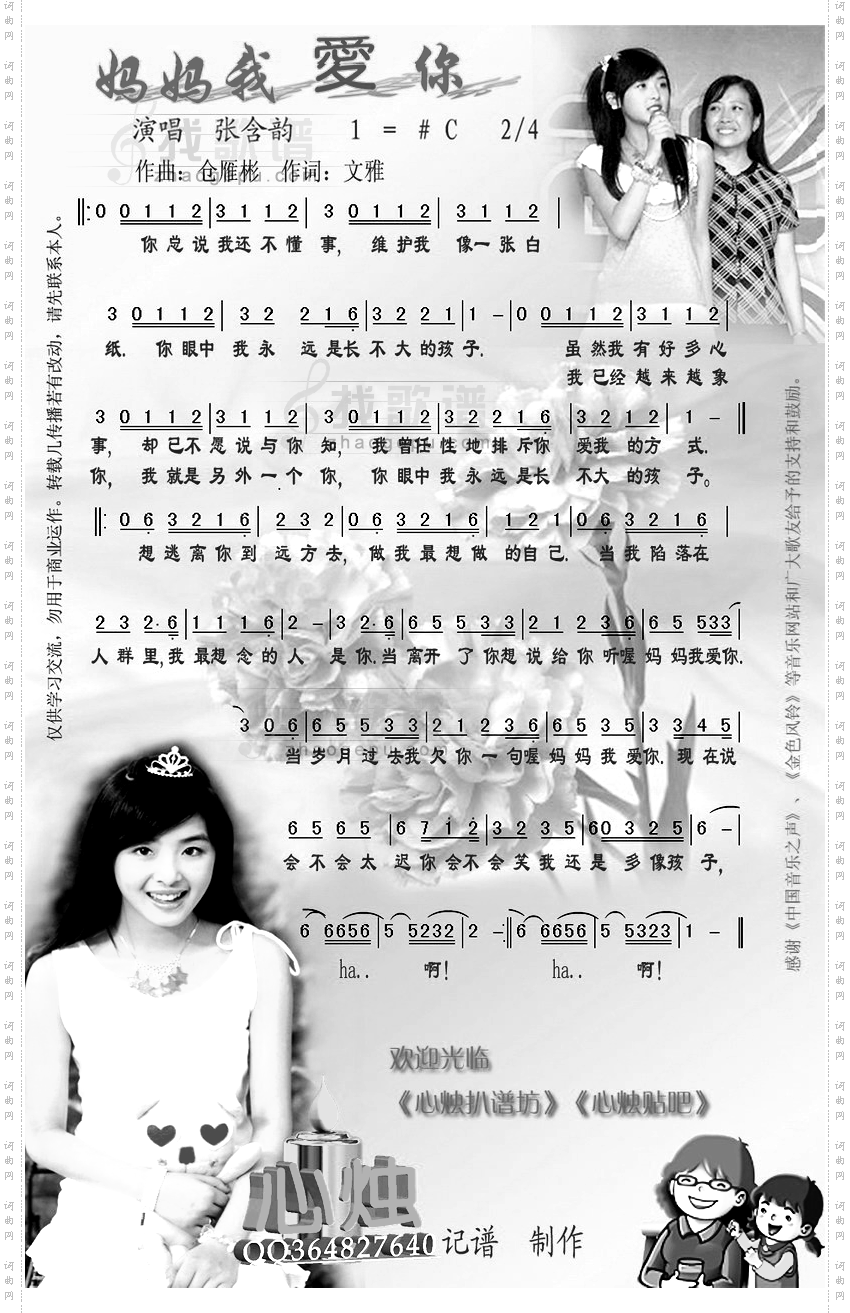 妈妈我愛你
演唱 张含韵 1 = #C 2/4
作曲：仓雁彬 作词：文雅
0 0 1 1 2 | 3 1 1 2 | 3 0 1 1 2 | 3 1 1 2 |
你总说我还不懂事，维护我像一张白
3 0 1 1 2 | 3 2 2 1 6 | 3 2 2 1 | 1 － | 0 0 1 1 2 | 3 1 1 2 |
纸．你眼中我永远是长不大的孩子．虽然我有好多心
我已经越来越象
3 0 1 1 2 | 3 1 1 2 | 3 0 1 1 2 | 3 2 2 1 6 | 3 2 1 2 | 1 － ‖
事，却已不愿说与你知，我曾任性地排斥你爱我的方式．
你，我就是另外一个你，你眼中我永远是长不大的孩子。
‖: 0 6 3 2 1 6 | 2 3 2 | 0 6 3 2 1 6 | 1 2 1 | 0 6 3 2 1 6 |
想逃离你到远方去，做我最想做的自己．当我陷落在
2 3 2· 6 | 1 1 1 6 | 2 － | 3 2· 6 | 6 5 5 3 3 | 2 1 2 3 6 | 6 5 533 |
人群里，我最想念的人是你．当离开了你想说给你听喔妈妈我爱你．
3 0 6 | 6 5 5 3 3 | 2 1 2 3 6 | 6 5 3 5 | 3 3 4 5 |
当岁月过去我欠你一句喔妈妈我爱你．现在说
6 5 6 5 | 6 7 1 2 | 3 2 3 5 | 60 3 2 5 | 6 － |
会不会太迟你会不会笑我还是多像孩子，
6 6656 | 5 5232 | 2 － :‖ 6 6656 | 5 5323 | 1 － ‖
ha.. 啊！ ha.. 啊！
仅供学习交流，勿用于商业运作。转载几传播若有改动，请先联系本人。
感谢《中国音乐之声》、《金色风铃》等音乐网站和广大歌友给予的支持和鼓励。
欢迎光临
《心烛扒谱坊》《心烛贴吧》
心烛
QQ364827640 记谱 制作
找歌谱
zhaogepu.com
词曲网